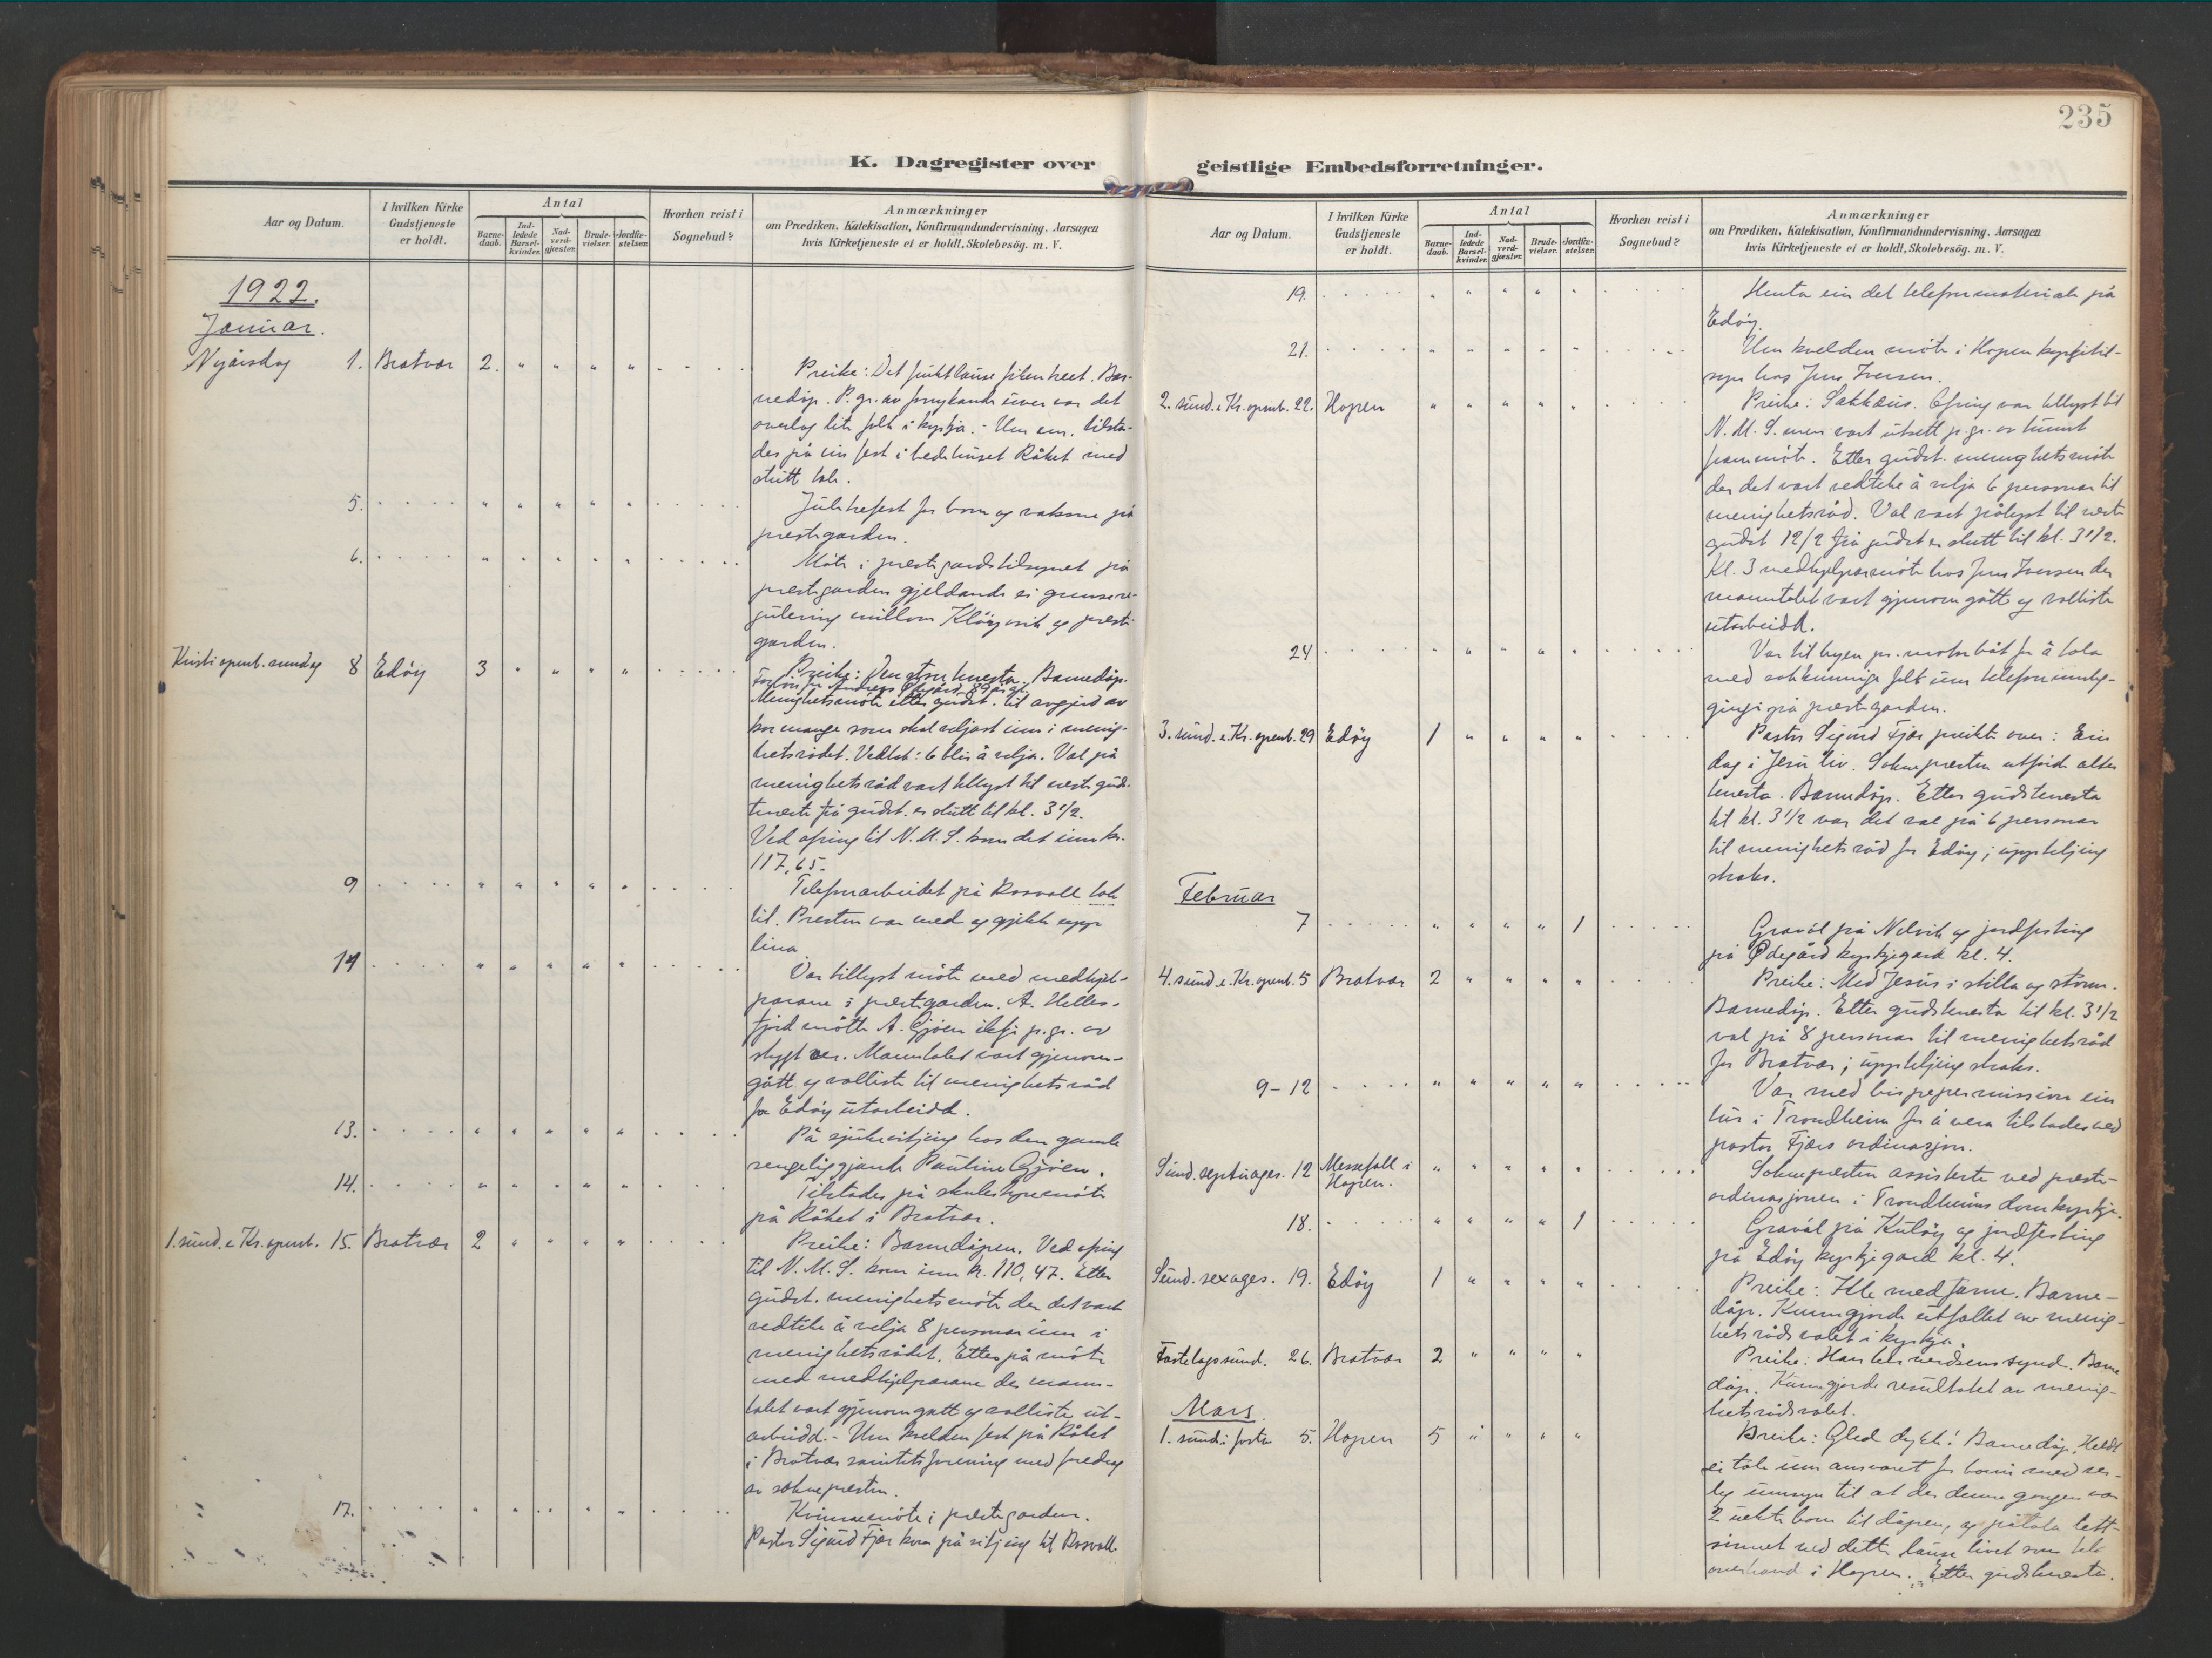 235
K. Dagregister over
geistlige Embedsforretninger.
Aar og Datum.
I hvilken Kirke Gudstjeneste er holdt.
Antal
Barne-daab.
Ind-ledede Barsel-kvinder.
Nad-verd-gjæster.
Brude-vielser.
Jordfæ-stelser.
Hvorhen reist i Sognebud?
Anmærkninger
om Prædiken, Katekisation, Konfirmandundervisning, Aarsagen
hvis Kirketjeneste ei er holdt, Skolebesög. m. V.
1922.
Januar.
Nyårsdag 1. Bratvær 2. " " " "
Preike: Det
nedåp. P. gr. av uver var det
overlag lite folk i kyrkja. - Um em. tilsta-
des på ein fest i bedehuset Råket med
stutt tale.
5. " " " " "
Juletrefest for born og vaksne på
prestegarden.
6. " " " " "
Møte i prestegardstilsynet på
prestegarden gjeldande ei grensere-
gulering millom og preste-
garden.
Kristi openb. sundag 8 Edöy 3 " " " "
Preike: Barnedåp.
Menighetsmöte etter gudst. til avgjerd av
kor mange som skal veljast inn i menig-
hetsrådet. Vedtok: 6 blir å velja. Val på
menighetsråd vart tillyst til neste guds-
teneste frå gudst. er slutt til kl. 3 1/2.
Ved ofring til N.M.S. kom det inn kr.
117,65.
9 " " " " "
Telefonarbeidet på Rosvoll tok
til. Presten var med og gjekk upp
lina.
14 " " " " "
Var tillyst möte med medhjel-
parane i prestegarden. A. Helles-
fjord møtte A. Gjøen ikkje p. gr. av
stygt ver. Manntalet vart gjenom-
gått og valliste til menighetsråd
for Edöy utarbeidd.
13. " " " " "
På sjukevitjing hos den gamle
sengeliggjande Pauline Gjøen.
14. " " " " "
Tilstades på skulestyremöte
på Råket i Bratvær.
1. sund. e. Kr. openb. 15. Bratvær 2 " " " "
Preike: Barnedåpen. Ved ofring
til N.M.S. kom inn kr. 110,47. Etter
gudst. menighetsmöte der det vart
vedteke å velja 8 personar inn i
menighetsrådet. Etterpå möte
med medhjelparane der mann-
talet vart gjenomgått og valliste ut-
arbeidd. - Um kvelden fest på Råket
i Bratvær sanitetsforening med foredrag
av sokneprestn.
17. " " " " "
Kvinnemöte i prestegarden.
Pastor Sigurd Fjær kom på vitjing til Rosvoll.
Aar og Datum.
I hvilken Kirke Gudstjeneste er holdt.
Antal
Barne-daab.
Ind-ledede Barsel-kvinder.
Nad-verd-gjæster.
Brude-vielser.
Jordfæ-stelser.
Hvorhen reist i Sognebud?
Anmærkninger
om Prædiken, Katekisation, Konfirmandundervisning, Aarsagen
hvis Kirketjeneste ei er holdt, Skolebesög. m. V.
19. " " " " "
Henta ein del telefonmateriale på
Edöy.
21. " " " " "
Um kvelden möte i Hopen kyrkjetil-
syn hos Jens Iversen.
2. sund. e. Kr. openb. 22. Hopen " " " " "
Preike: Sakkæus. Ofring var tillyst til
N.M.S. men vart utsett p. gr. av tunnt
frammöte. Etter gudst. menighetsmöte
der det vart vedteke å velja 6 personar til
menighetsråd. Val vart pålyst til neste
gudst 12/2 frå gudst er slutt til kl. 3 1/2.
Kl. 3 medhjelparmöte hos Jens Iversen der
manntalet vart gjenomgått og valliste
utarbeidd.
24 " " " " "
Var til byen pr. motorbåt for å tala
med sakkunnige folk um telefonumleg-
gingi på prestegarden.
3. sund. e. Kr. openb. 29 Edöy 1 " " " "
Pastor Sigurd Fjær preikte over: Ein
dag i Jesu liv. Soknepresten utførde alter-
tenesta. Barnedåp. Etter gudstenesta
til kl. 3 1/2 var det val på 6 personar
til menighetsråd for Edöy; uppteljing
straks.
Februar
7 " " " " 1
Gravöl på Nelvik og jordfesting
på Ödegård kyrkjegard kl. 4.
4. sund. e. Kr. openb. 5 Bratvær 2 " " " "
Preike: Med Jesus i stilla og storm.
Barnedåp. Etter gudstenesta til kl. 3 1/2
val på 8 personar til menighetsråd
for Bratvær; uppteljing straks.
9-12 " " " " "
Var med bispepermission ein
tur i Trondheim for å vera tilstades ved
pastor Fjærs ordinasjon.
Sund. septuages. 12 Messefall i Hopen. " " " " "
Soknepresten assisterte ved preste-
ordinasjonen i Trondheims domkyrkje.
18. " " " " 1
Gravöl på Kulöy og jordfesting
på Edöy kyrkjegard kl. 4.
Sund. sexages. 19. Edöy 1 " " " "
Preike: Ille medfarne. Barne-
dåp. Kunngjorde utfallet av menig-
hetsrådsvalet i kyrkja.
Fastelagssund. 26. Bratvær 2 " " " "
Preike: Han ber verdsens synd. Barne
dåp. Kunngjorde resultatet av menig-
hetsrådsvalet.
Mars
1. sund. i fasta 5. Hopen 5 " " " "
Preike: Gled dykk! Barnedåp. Heldt
ei tale um ansvaret for borni med ser-
leg umsyn til at der denne gongen var
2 uekte born til dåpen, og påtala lett-
sinnet ved dette lause livet som tek
overhand i Hopen. Etter gudstenesta.